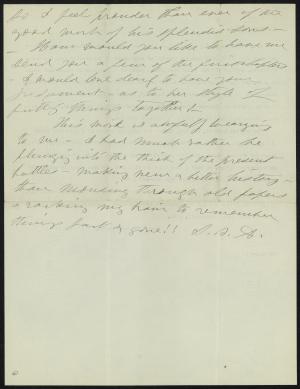 so I feel prouder than ever of the
good work of his splendid sons —
How would you like to have me
send you a few of the first chapters
— I would love dearly to have your
judgment — as to her style of
putting things together —
This work is awfully wearying
to me — I had much rather be
plunging into the thick of the present
battles — making new & better history —
than mousing through old papers
& racking my brain to remember
things past & gone!! S. B. A.